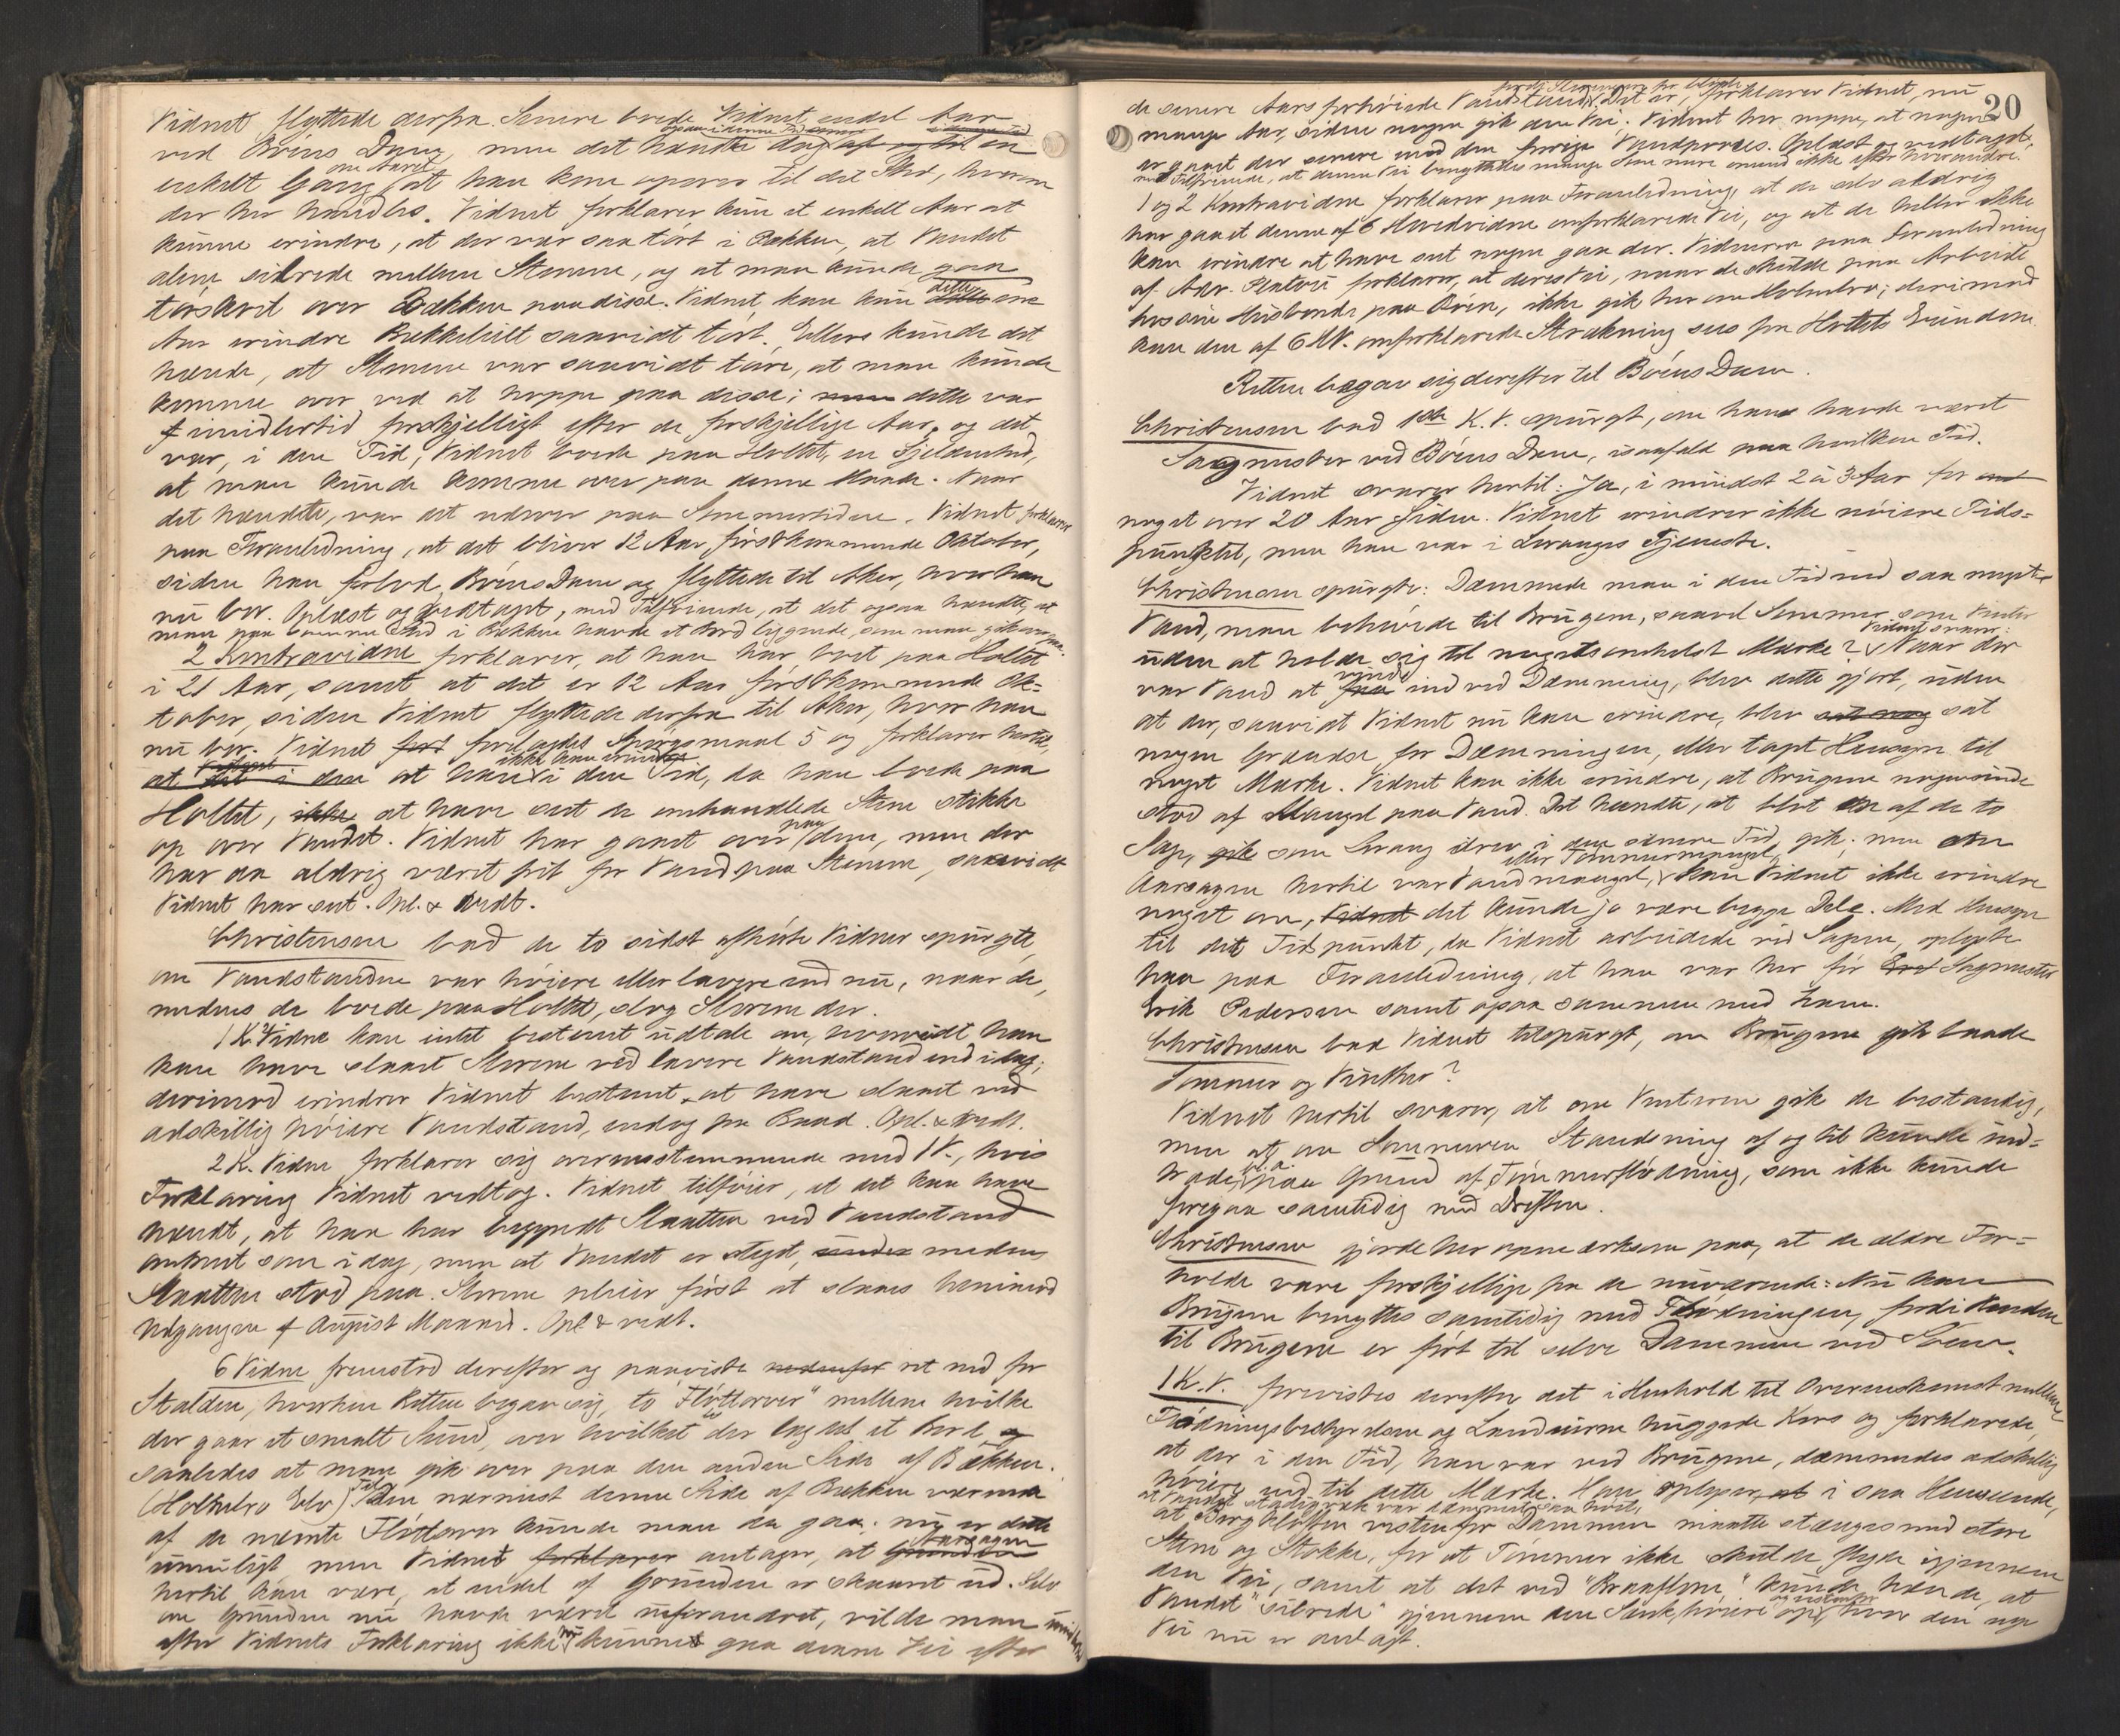 Vidnet flyttede derfra. Senere boede Vidnet endel Aar
ved Böéns Dam, men det hændte dog af og til en
enkelt Gang om Aaret at han kom op til det Sted, hvorom
der her handles. Vidnet forklarer kun et enkelt Aar at
kunne erindre, at der var saa tört i Bækken, at Vandet
alene silrede mellem Stenene, og at man kunde gaa
törskoet over Bækken paa disse. Vidnet kan kun dette ene
Aar erindre Bækkeleiet saavidt tört. Ellers kunde det
hænde, at Stenene var saavidt töre, at man kunde
komme over ved at hoppe paa disse; men dette var
imidlertid forskjelligt efter de forskjellige Aar, og det
var, i den Tid, Vidnet boede paa Holtet, en Sjeldenhed,
at man kunde komme over paa denne Maade. Naar
det hændte, var det udover paa Sommertiden. Vidnet forklarer
paa Foranledning, at det bliver 12 Aar förstkommende Oktober,
siden han forlod Böéns Dam og flyttede til Aker, hvor han
nu bor. Oplæst og vedtaget, med Tilföiende, at det ogsaa hændte, at
man paa samme Sted i Bækken havde et Bord liggende, som man gik over paa.
2 Kontravidne forklarer, at han har boet paa Holtet
i 21 Aar, samt at det er 12 Aar förstkommende Ok-
tober, siden Vidnet flyttede derfra til Aker, hvor han
nu bor. Vidnet forelagdes Spörgsmaal 5 og forklarer hertil,
at han ikke kan erindre i den Tid, da han boede paa
Holtet, at have seet de omhandlede Stene stikke
op over Vandet. Vidnet har gaaet over paa dem, men der
har da aldrig været frit for Vand paa Stenene, saavidt
Vidnet har seet. Opl. & vedt.
Christensen bad de to sidst afhörte Vidner spurgt,
om Vandstanden var höiere eller lavere end nu, naar de,
medens de boede paa Holtet, slog Storren der.
1 K. Vidne kan intet bestemt udtale om, hvorvidt han
kan have slaaet Storren ved lavere Vandstand end idag;
derimod erindrer Vidnet bestemt at have slaaet ved
adskillig höiere Vandstand, endog fra Baad. Opl. & vedt.
2 K. Vidne forklarer sig overensstemmende med 1 V., hvis
Forklaring Vidnet vedtog. Vidnet tilföier, at det kan have
hændt, at han har begyndt Slaatten ved Vandstand
omtrent som idag, men at Vandet er steget, medens
Slaatten stod paa. Storren pleier först at slaaes henimod
Udgangen af August Maaned. Opl & vedt.
6 Vidne fremstod derefter og paaviste ret ned for
Stalden, hvorhen Retten begav sig, to "Flöttorver" mellem hvilke
der gaar et smalt Sund, over hvilket der lagdes et Bord
saaledes at man gik over paa den anden Side af Bækken.
(Holtebro Elv) Til den nærmest denne Side af Bækken værende
af de nævnte Flöttorver kunde man da gaa; nu er dette
umuligt men Vidnet antager, at Aarsagen
hertil kan være, at endel af Grunden er skaaret ud. Selv
om Grunden nu havde været uforandret, vilde man imidlertid
efter Vidnets Forklaring ikke nu kunnet gaa denne Vei efter
20
de senere Aars forhöiede Vandstand. Det er, forklarer Vidnet, nu
mange Aar, siden nogen gik den Vei. Vidnet tror neppe, at nogen
er gaaet der senere end den forrige Vandproces. Oplæst og vedtaget,
med Tilföiende, at denne Vei benyttedes mange Aar men ikke efter hverandre.
1 og 2 Kontravidne forklarer paa Foranledning, at de selv aldrig
har gaaet denne af 6 Hovedvidne omforklarede Vei, og at de heller ikke
kan erindre at have seet nogen gaa der. Vidnerne paa Foranledning
af Adv. forklarer, at deres Vei, naar de skulde paa Arbeide
hos sin Husbonde paa Böén, ikke gik her om Holtebro; derimod
kan den af 6 HV. omforklarede Strækning sees fra Holtets Eiendom.
Retten begav sig derefter til Böéns Dam.
Christensen bad 1ste K.V. spurgt, om han havde været
Sagmester ved Böéns Dam, isaafald paa hvilken Tid.
Vidnet svarer hertil: Ja, i mindst 2 à 3 Aar for
noget over 20 Aar siden. Vidnet erindrer ikke nöiere Tids-
punktet, men han var i Svangs Tjeneste.
Christensen spurgte: Dæmmede man i den Tid ned saa meget
Vand, man behövede til Brugene, saavel Sommer som Vinter
uden at holde sig til nogetsomhelst Mærke? Vidnet svarer: Naar der
var Vand at vinde ind ved Dæmning, blev dette gjort, uden
at der, saavidt Vidnet nu kan erindre, blev sat
nogen Grændse for Dæmningen, eller taget Hensyn til
noget Mærke. Vidnet kan ikke erindre, at Brugene nogensinde
stod af Mangel paa Vand. Det hændte, at blot en af de to
Sage, som Svang drev i den senere Tid, gik; men om
Aarsagen hertil var Vandmangel, eller Tömmermangel, kan Vidnet ikke erindre
noget om, det kunde jo være begge Dele. Med Hensyn
til det Tidspunkt, da Vidnet arbeidede ved Sagene, oplyste
han paa Foranledning, at han var her för Sagmester
Erik Pedersen samt ogsaa sammen med ham.
Christensen bad Vidnet tilspurgt, om Brugene gik baade
Sommer og Vinter?
Vidnet hertil svarer, at om Vinteren gik de bestandig,
men at om Sommeren Standsning af og til kunde ind-
træde, bl.a. paa Grund af Tömmerflödning, som ikke kunde
foregaa samtidig med Driften.
Christensen gjorde her opmærksom paa, at de ældre For-
holde vare forskjellige fra de nuværende: Nu kan
Brugene benyttes samtidig med Flödningen, fordi Renden
til Brugene er fört til selve Dammen ved Böen.
1 K.V. forevistes derefter det i Henhold til Overenskomst mellem
Flödningsbestyrelsen og Landeierne huggede Kors og forklarede,
at der i den Tid, han var ved Brugene, dæmmedes adskillig
höiere end til dette Mærke. Han oplyser, i saa Henseende,
at Bergklöften vestenfor Dammen maatte stænges med store
Stene og Stokke, for at Tömmer ikke skulde flyde igjennem
den Vei, samt at det ved "Braaflom" kunde hænde, at
Vandet "silrede" gjennem den Sænk, höiere op, hvor den nye
Vei nu er anlagt.